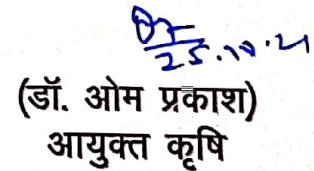 25.10.21
(डॉ. ओम प्रकाश)
आयुक्त कृषि